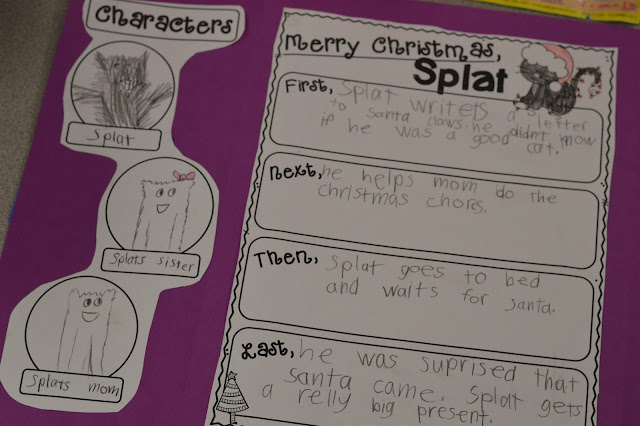 Characters
Splat
Splats sister
Splats mom
Merry Christmas,
Splat
First, Splat writets a letter
to santa claws. he didnt know
if he was a good cat.
Next, he helps mom do the
christmas chores.
Then, Splat goes to bed
and waits for santa.
Last, he was suprised that
santa came. Splat gets
a relly big present.